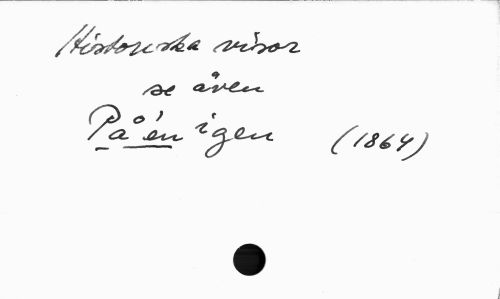 Historiska visor
se även
På'én igen (1864)